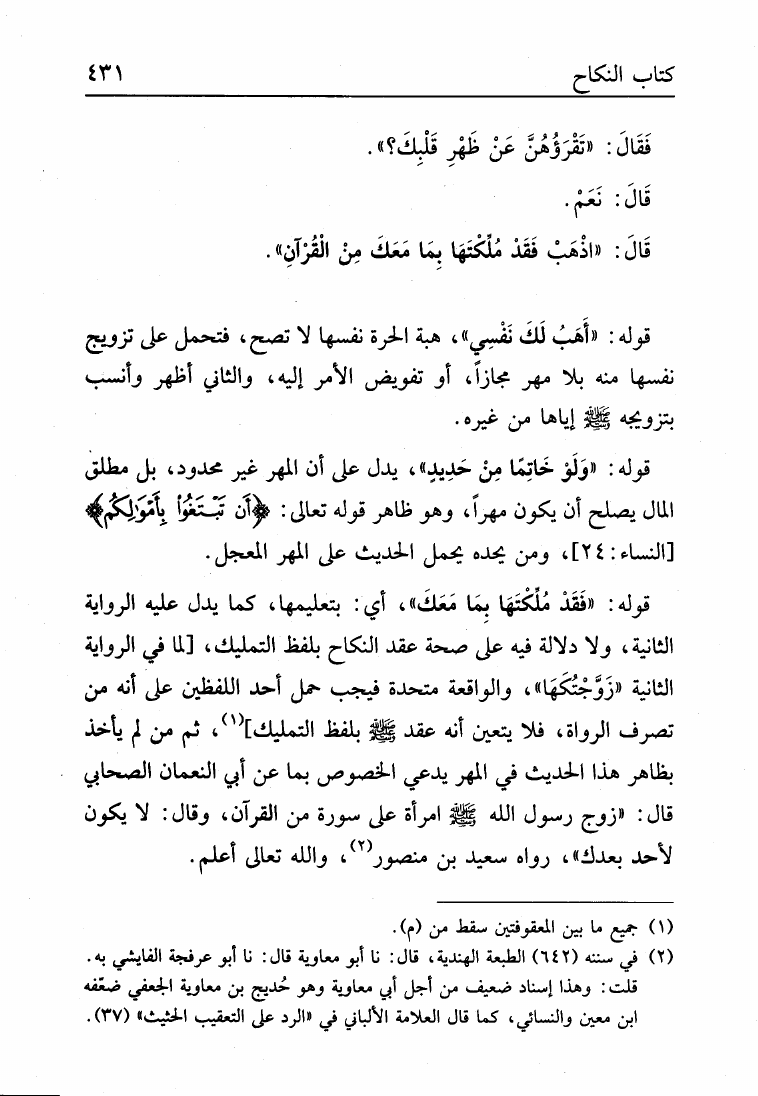 كتاب النكاح ٤٣١
فَقَالَ: «تَقْرَؤُهُنَّ عَنْ ظَهْرِ قَلْبِكَ؟».
قَالَ: نَعَمْ.
قَالَ: «اذْهَبْ فَقَدْ مُلِّكْتَهَا بِمَا مَعَكَ مِنْ الْقُرْآنِ».
قوله: «أَهَبُ لَكَ نَفْسِي»، هبة الحرة نفسها لا تصح، فتحمل على تزويج
نفسها منه بلا مهر مجازاً، أو تفويض الأمر إليه، والثاني أظهر وأنسب
بتزويجه ﷺ إياها من غيره.
قوله: «وَلَوْ خَاتِمًا مِنْ حَدِيدٍ»، يدل على أن المهر غير محدود، بل مطلق
المال يصلح أن يكون مهراً، وهو ظاهر قوله تعالى: ﴿أَن تَبْتَغُوا۟ بِأَمْوَٰلِكُم﴾
[النساء: ٢٤]، ومن يحده يحمل الحديث على المهر المعجل.
قوله: «فَقَدْ مُلِّكْتَهَا بِمَا مَعَكَ»، أي: بتعليمها، كما يدل عليه الرواية
الثانية، ولا دلالة فيه على صحة عقد النكاح بلفظ التمليك، [لما في الرواية
الثانية «زَوَّجْتُكَهَا»، والواقعة متحدة فيجب حمل أحد اللفظين على أنه من
تصرف الرواة، فلا يتعين أنه عقد ﷺ بلفظ التمليك](١)، ثم من لم يأخذ
بظاهر هذا الحديث في المهر يدعي الخصوص بما عن أبي النعمان الصحابي
قال: «زوج رسول الله ﷺ امرأة على سورة من القرآن، وقال: لا يكون
لأحد بعدك»، رواه سعيد بن منصور(٢)، والله تعالى أعلم.
(١) جميع ما بين المعقوفتين سقط من (م).
(٢) في سننه (٦٤٢) الطبعة الهندية، قال: نا أبو معاوية قال: نا أبو عرفجة الفايشي به.
قلت: وهذا إسناد ضعيف من أجل أبي معاوية وهو حُديج بن معاوية الجعفي ضعّفه
ابن معين والنسائي، كما قال العلامة الألباني في «الرد على التعقيب الحثيث» (٣٧).